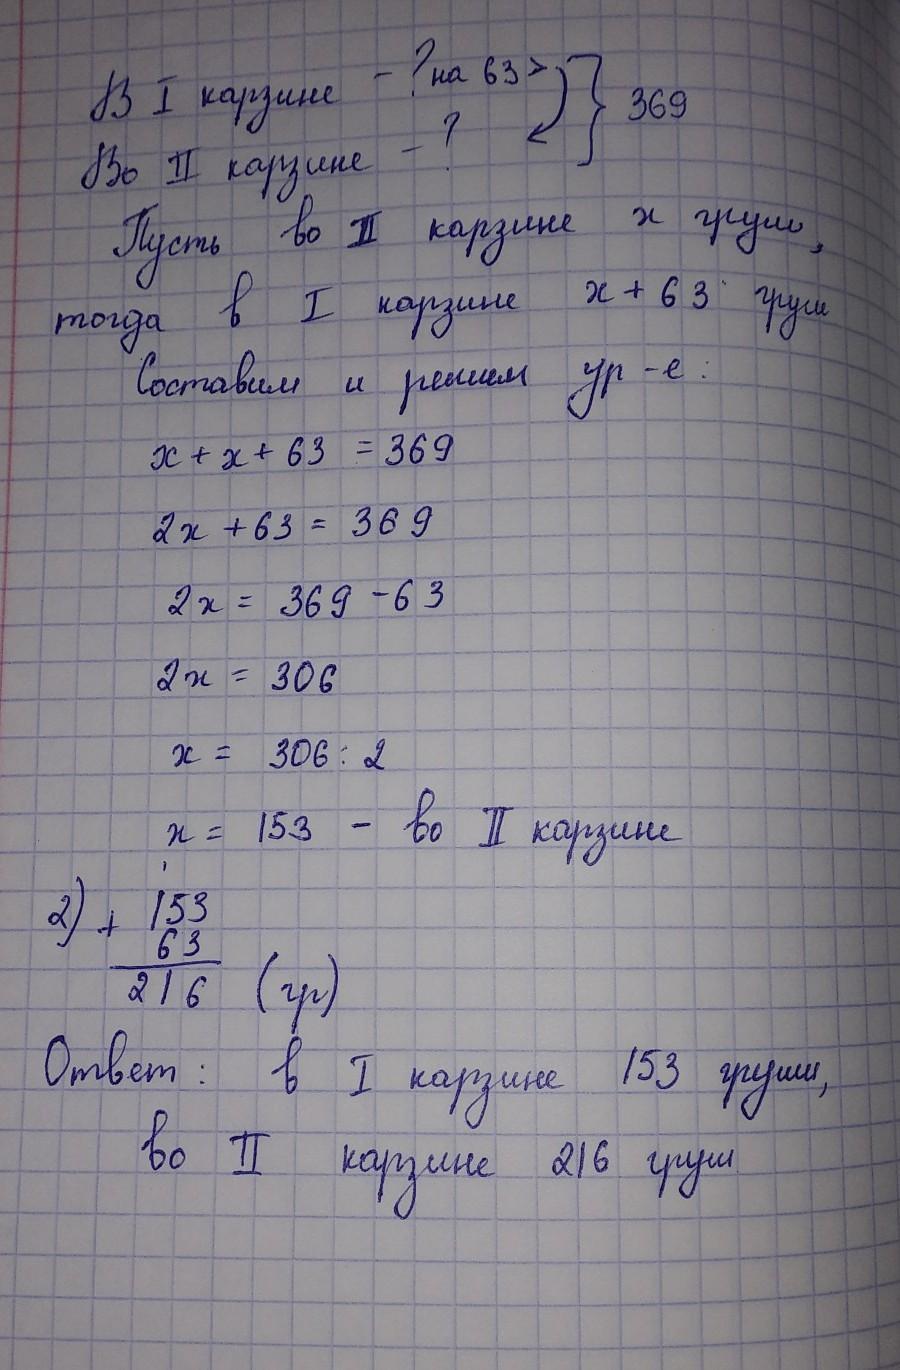 В I карзине - ? на 63 > } 369
Во II карзине - ?
Пусть во II карзине x груш,
тогда в I карзине x + 63 груш
Составим и решим ур-е:
x + x + 63 = 369
2x + 63 = 369
2x = 369 - 63
2x = 306
x = 306 : 2
x = 153 - во II карзине
2) + 153
63
216 (гр)
Ответ: в I карзине 153 груши,
во II карзине 216 груш